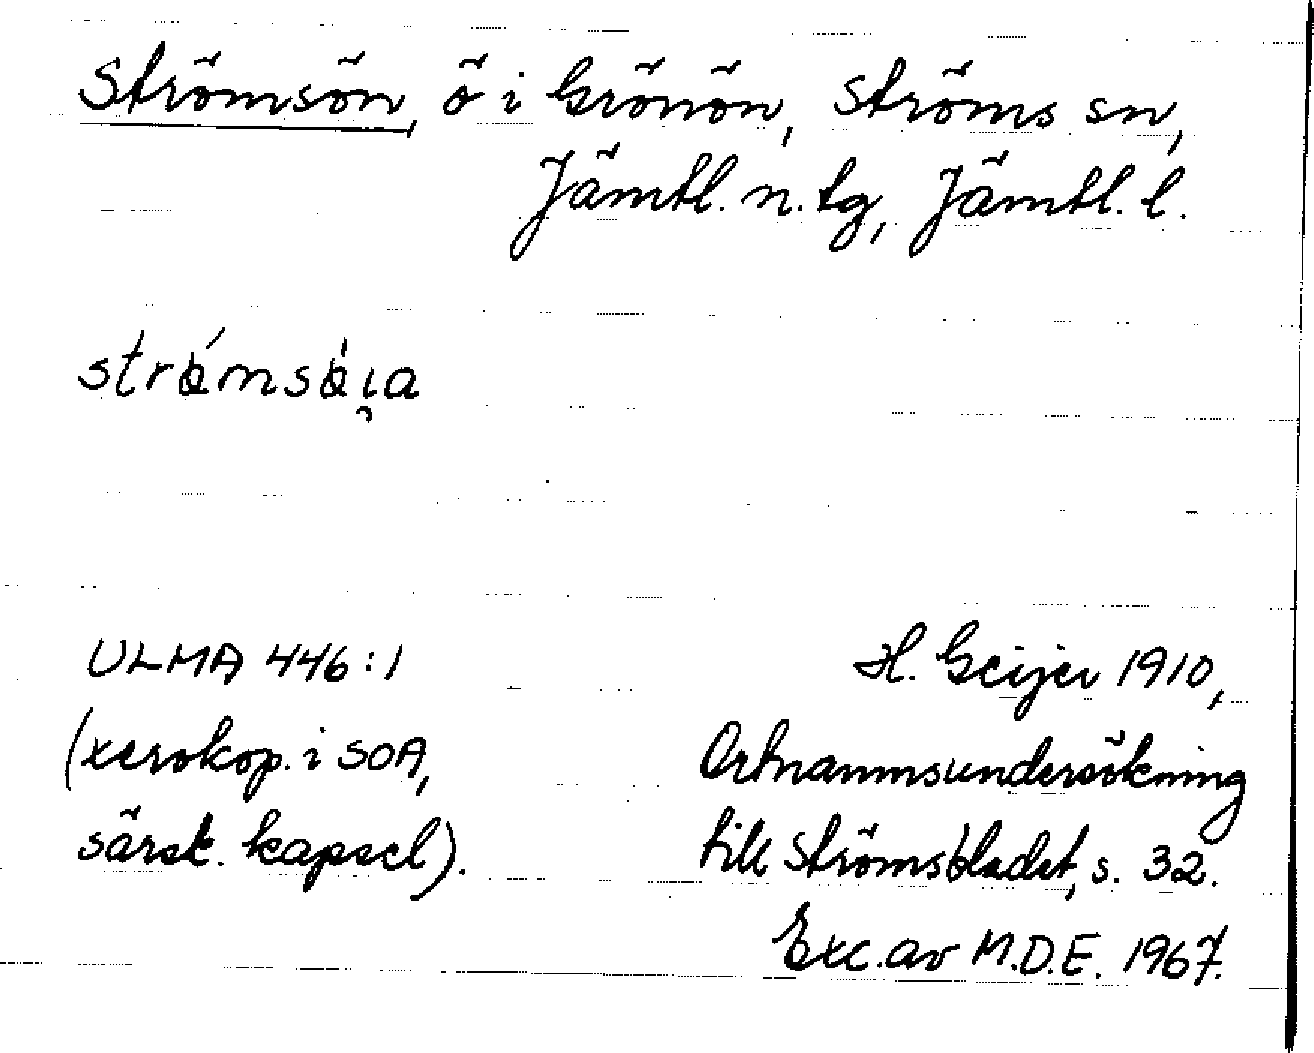 Strömsön, ö i Grönön, Ströms sn,
Jämtl. n. tg, Jämtl. l.
ULMA 446:1
H. Geijer 1910,
(xerokop. i SOA,
Ortnamnsundersökning
särsk. kapsel).
till Strömsbladet, s. 32.
Exc. av M.D.E. 1967.